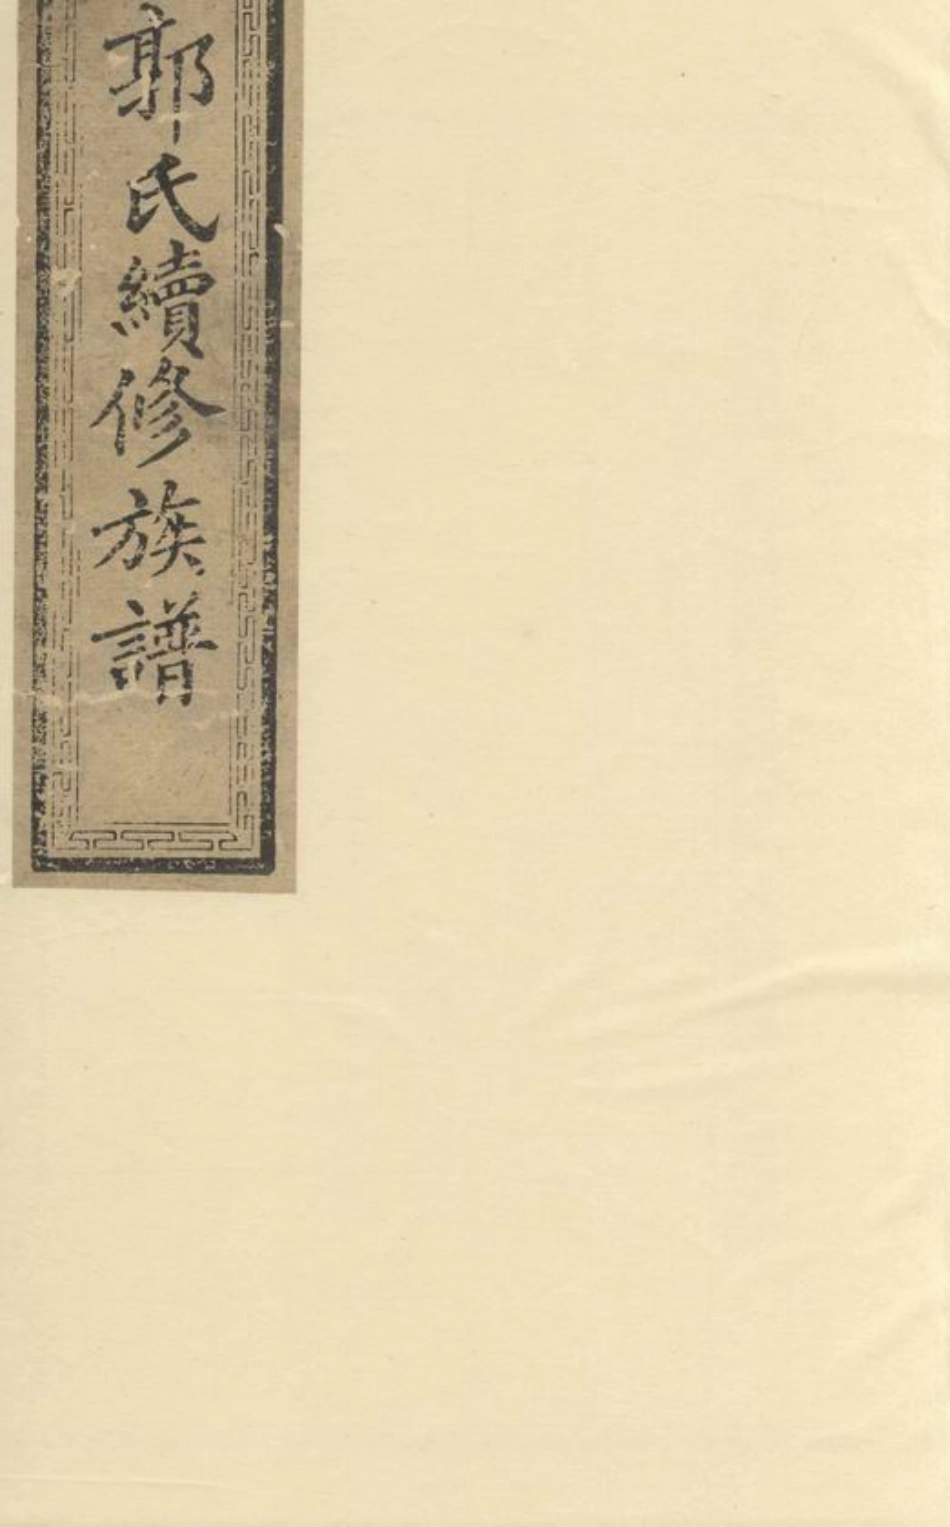 郭氏續修族譜